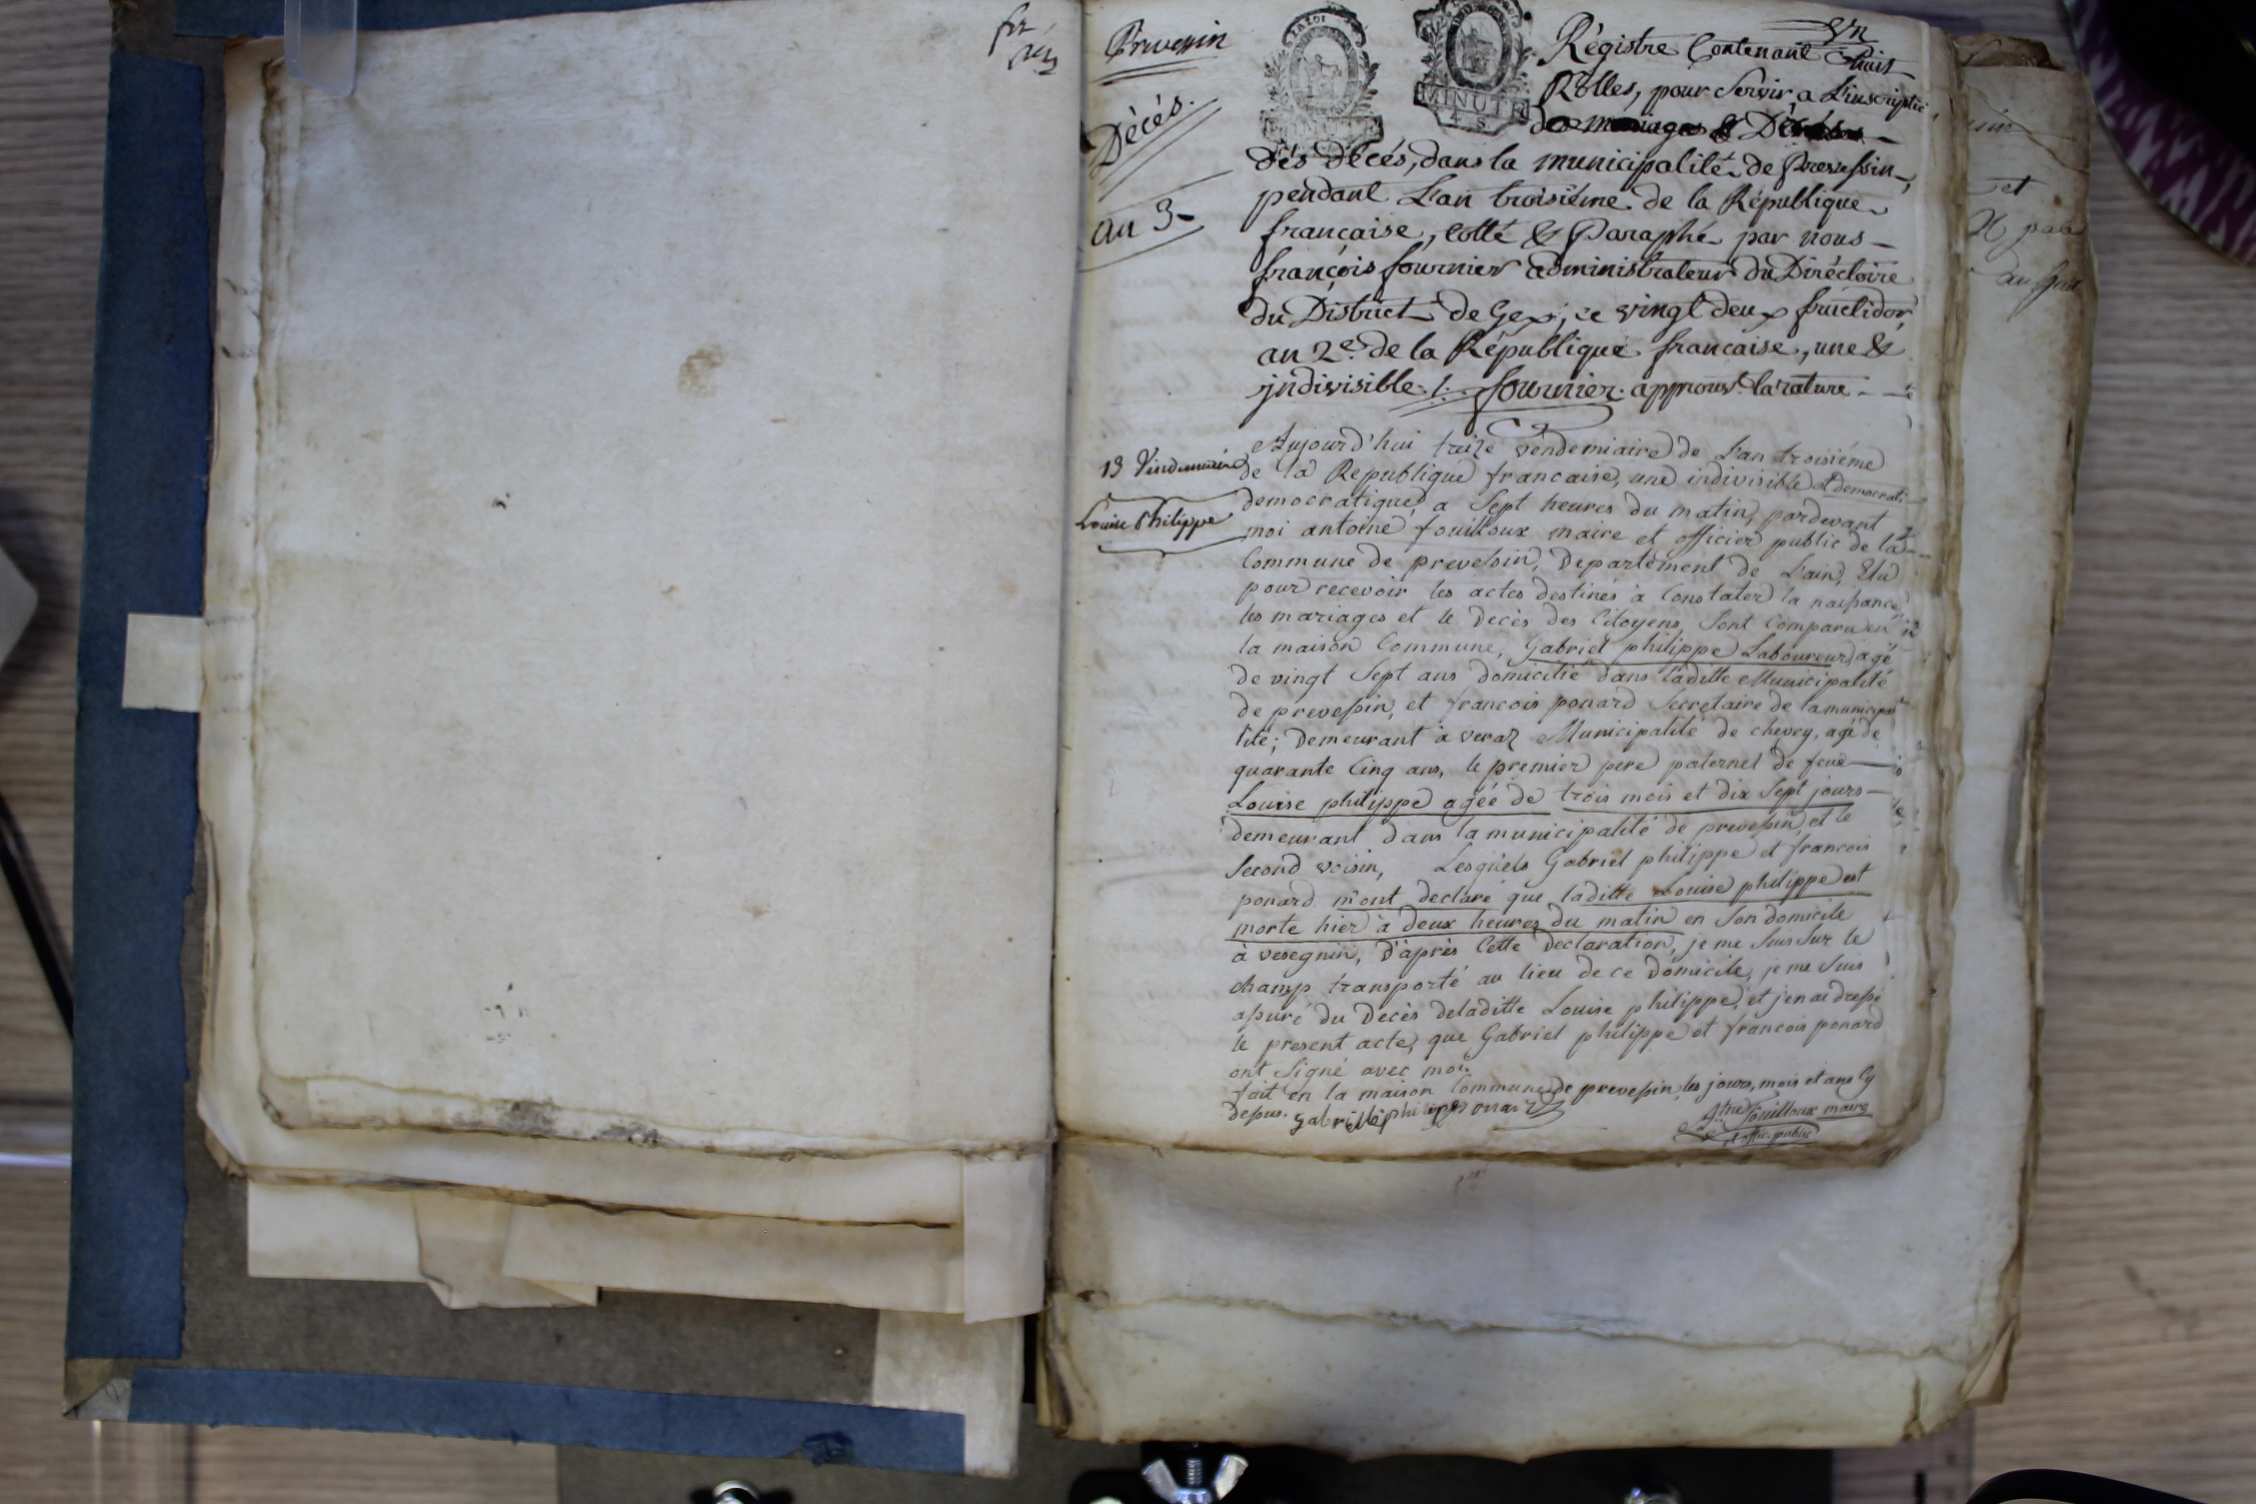 Prevessin
Décés.
an 3
LA LOI
MINUTE
4. S.
Un
Régistre Contenant huit
Rôlles, pour Servir, a L'inscriptio
des mariages &
Dés Décés, dans la municipalité de Prevessin,
pendant L'an troisiéme de la République
francaise, Cotté & Paraphé par nous
françois fournier administrateur du Diréctoire
du District de Gex, ce vingt deux fructidor
an 2e. de la République francaise, une &
jndivisible. /. fournier. approuv. la rature
13 Vendemiaire
Louise Philippe
Aujourd'hui treize vendemiaire de L'an troisiéme
de la Republique francaise, une indivisible et democrati
democratique, a Sept heures du matin, pardevant
moi antoine fouilloux maire et officier public de la
Commune de prevessin, Departement de L'ain, Elu
pour recevoir les actes destinés à Constater la naissance
les mariages et le decès des Citoyens, Sont Comparu en
la maison Commune, Gabriel philippe Laboureur, agé
de vingt Sept ans domicilié dans laditte Municipalité
de prevessin, et francois ponard Secretaire de la municipa
lité; Demeurant à veraz Municipalité de chevry, agé de
quarante Cinq ans, le premier pere paternel de feue
Louise philippe agée de trois mois et dix Sept jours
demeurant dans la municipalité de prevessin, et le
Second voisin, Lesquels Gabriel philippe et francois
ponard m'ont declaré que laditte Louise philippe est
morte hier à deux heures du matin en Son domicile
à vesegnin, D'après Cette Declaration, je me Suis Sur le
champ transporté au lieu de ce Domicile, je me Suis
assuré du Decès deladitte Louise philippe, et j'en ai dressé
le present acte, que Gabriel philippe et francois ponard
ont Signé avec moi.
fait en la maison Commune de prevessin, les jours, mois et ans Cy
dessus. Gabriel philippe ponard
fouilloux maire
offic. public